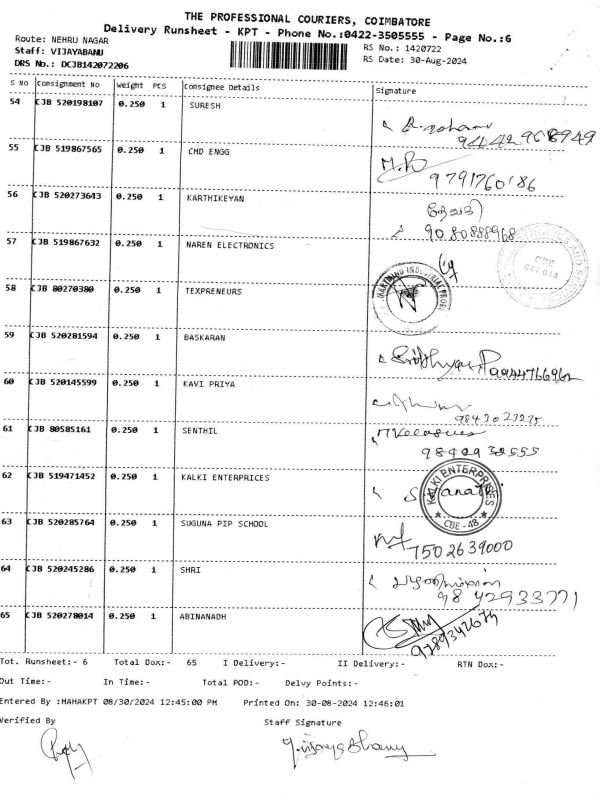 THE PROFESSIONAL COURIERS, COIMBATORE
Delivery Runsheet - KPT - Phone No.:0422-3505555 - Page No.:6
Route: NEHRU NAGAR
RS No.: 1420722
Staff: VIJAYABANU
RS Date: 30-Aug-2024
DRS No.: DCJB142072206
S No Consignment No Weight PCS Consignee Details Signature
54 CJB 520198107 0.250 1 SURESH
55 CJB 519867565 0.250 1 CHD ENGG
9791760186
56 CJB 520273643 0.250 1 KARTHIKEYAN
தேவகி
9080888968
57 CJB 519867632 0.250 1 NAREN ELECTRONICS
CBE
58 CJB 80270380 0.250 1 TEXPRENEURS
59 CJB 520281594 0.250 1 BASKARAN
9944766962
60 CJB 520145599 0.250 1 KAVI PRIYA
61 CJB 80585161 0.250 1 SENTHIL
9842932555
62 CJB 519471452 0.250 1 KALKI ENTERPRICES
KALKI ENTERPRICES
CBE - 48
63 CJB 520285764 0.250 1 SUGUNA PIP SCHOOL
7502639000
64 CJB 520245286 0.250 1 SHRI
9842933771
65 CJB 520278014 0.250 1 ABINANADH
9789342674
Tot. Runsheet:- 6 Total Dox:- 65 I Delivery:- II Delivery:- RTN Dox:-
Out Time:- In Time:- Total POD:- Delvy Points:-
Entered By :MAHAKPT 08/30/2024 12:45:00 PM Printed On: 30-08-2024 12:46:01
Verified By Staff Signature